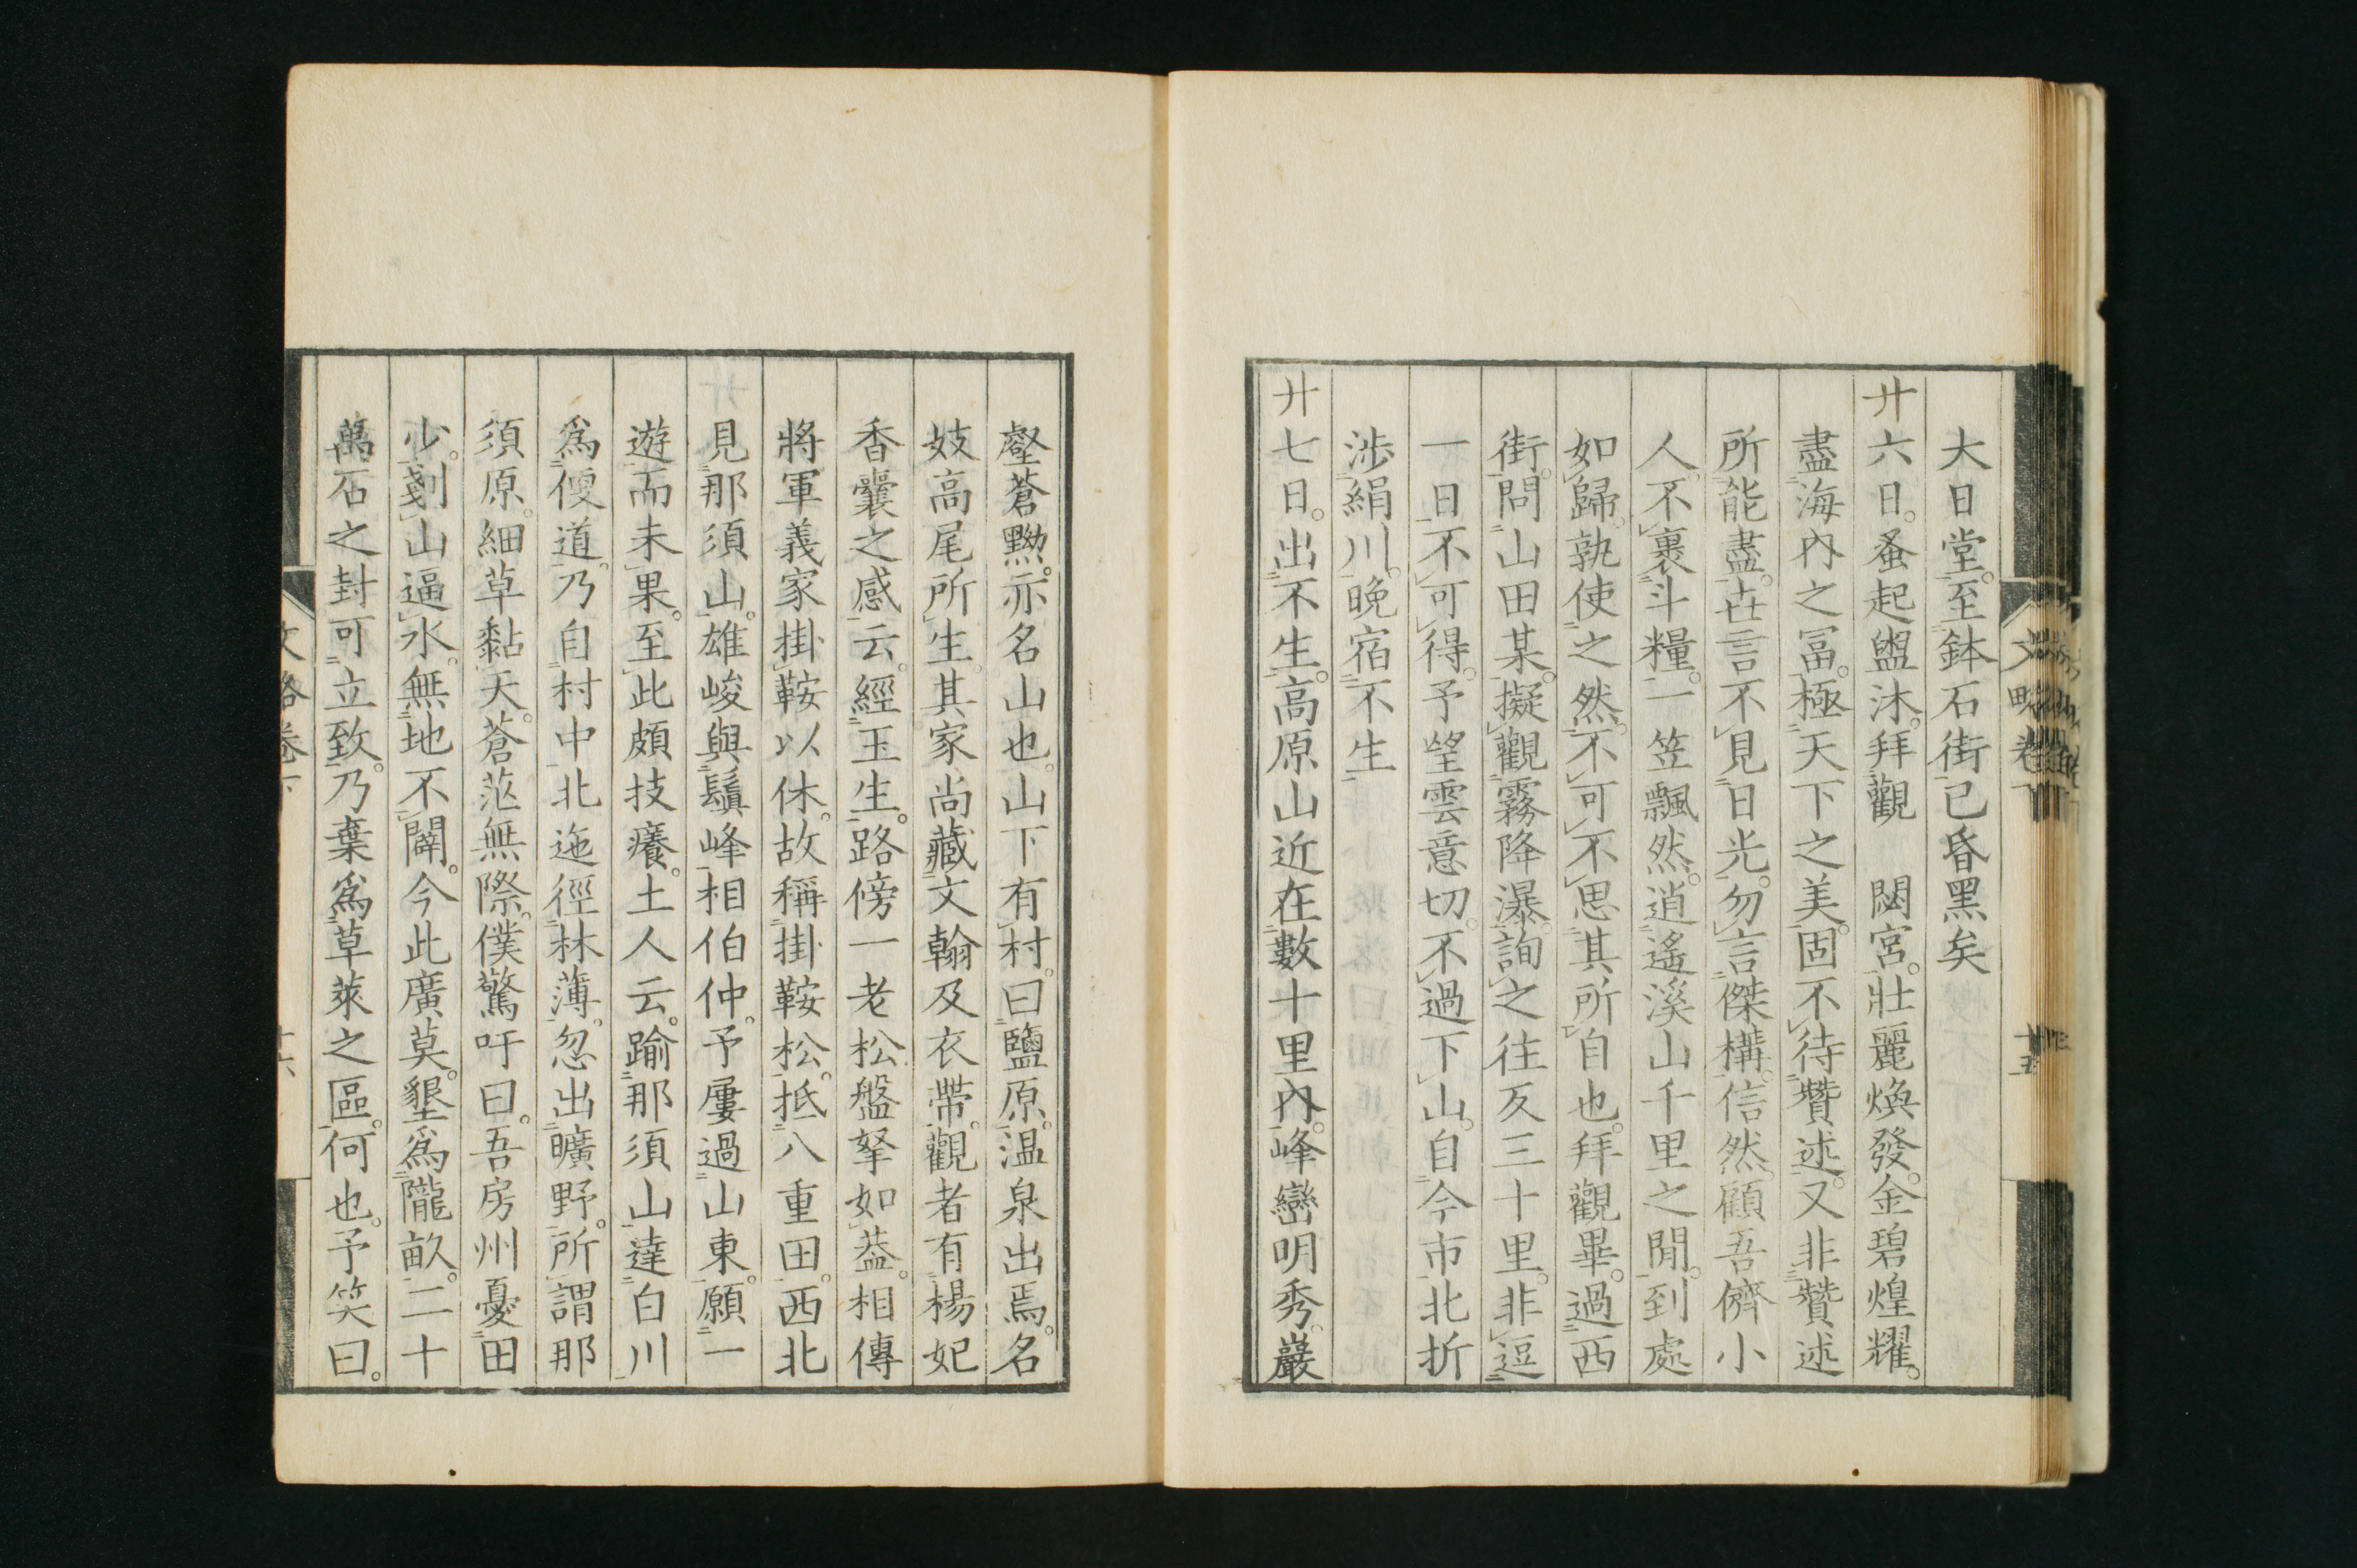 大日堂。至鉢石街已昏黑矣
廿六日。蚤起盥沐。拜觀　閟宮。壯麗煥發。金碧煌耀。
盡海內之冨。極天下之美。固不待贊述。又非贊述
所能盡。世言不見日光。勿言傑構。信然。顧吾儕小
人。不裹斗糧。一笠飄然。逍遙溪山千里之閒。到處
如歸。孰使之然。不可不思其所自也。拜觀畢。過西
街。問山田某。擬觀霧降瀑。詢之往反三十里。非逗
一日不可得。予望雲意切。不過下山。自今市北折
涉絹川。晚宿不生
廿七日。出不生。高原山近在數十里內。峰巒明秀。巖
壑蒼黝。亦名山也。山下有村。曰鹽原。温泉出焉。名
妓高尾所生。其家尚藏文翰及衣帶。觀者有楊妃
香囊之感云。經玉生。路傍一老松盤拏如葢。相傳
將軍義家掛鞍以休。故稱掛鞍松。抵八重田。西北
見那須山。雄峻與鬚峰相伯仲。予屢過山東。願一
遊而未果。至此頗技癢。土人云。踰那須山達白川
爲便道。乃自村中北迤徑林薄。忽出曠野。所謂那
須原。細草黏天。蒼茫無際。僕驚吁曰。吾房州憂田
少。剗山逼水。無地不闢。今此廣莫。墾爲隴畝。二十
萬石之封可立致。乃棄爲草萊之區。何也。予笑曰。
文略卷下
十六